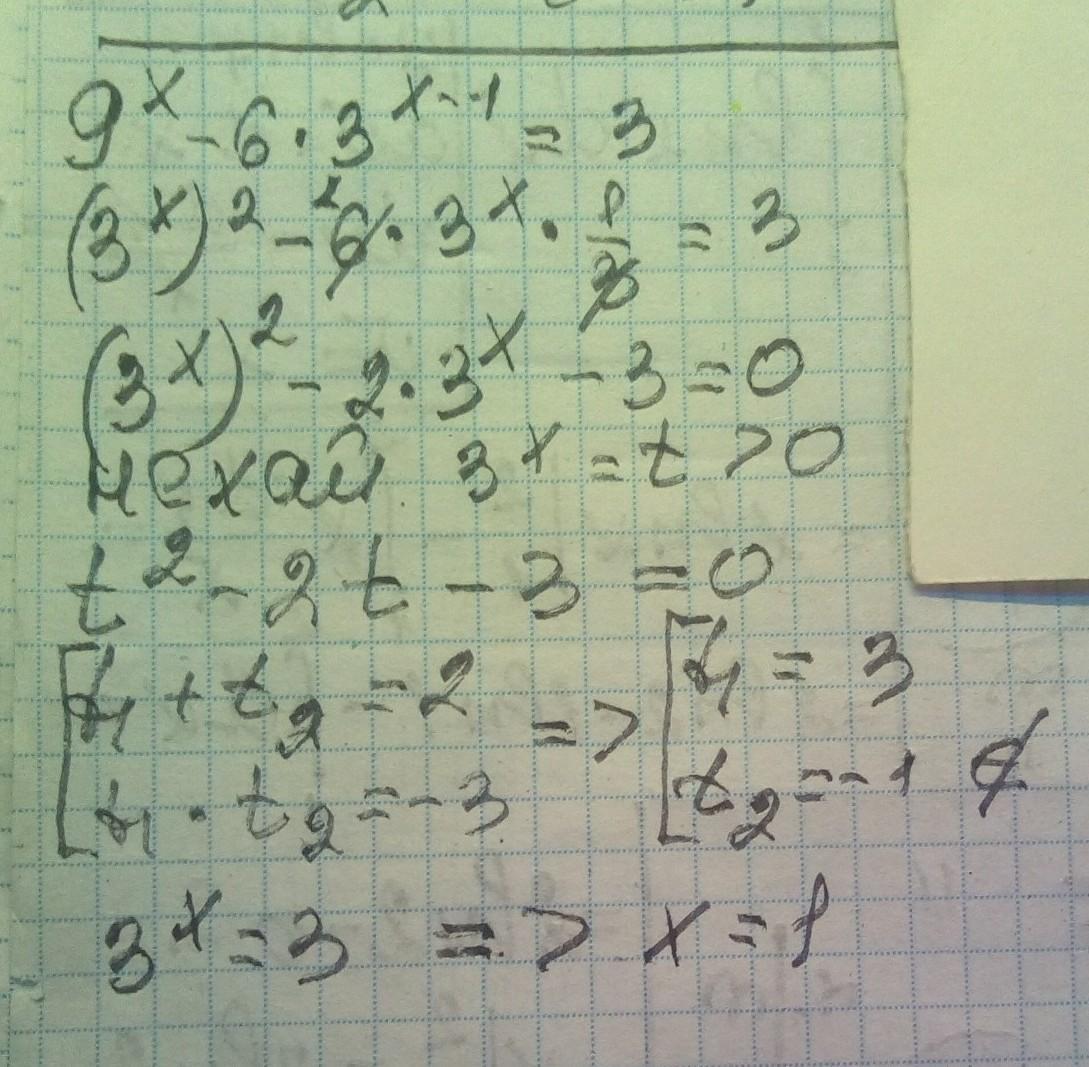 9^x - 6 · 3^{x-1} = 3
(3^x)^2 - 6 · 3^x · 1/3 = 3
(3^x)^2 - 2 · 3^x - 3 = 0
нехай 3^x = t > 0
t^2 - 2t - 3 = 0
[ t_1 + t_2 = 2 => [ t_1 = 3
t_1 · t_2 = -3 t_2 = -1 ∉
3^x = 3 => x = 1